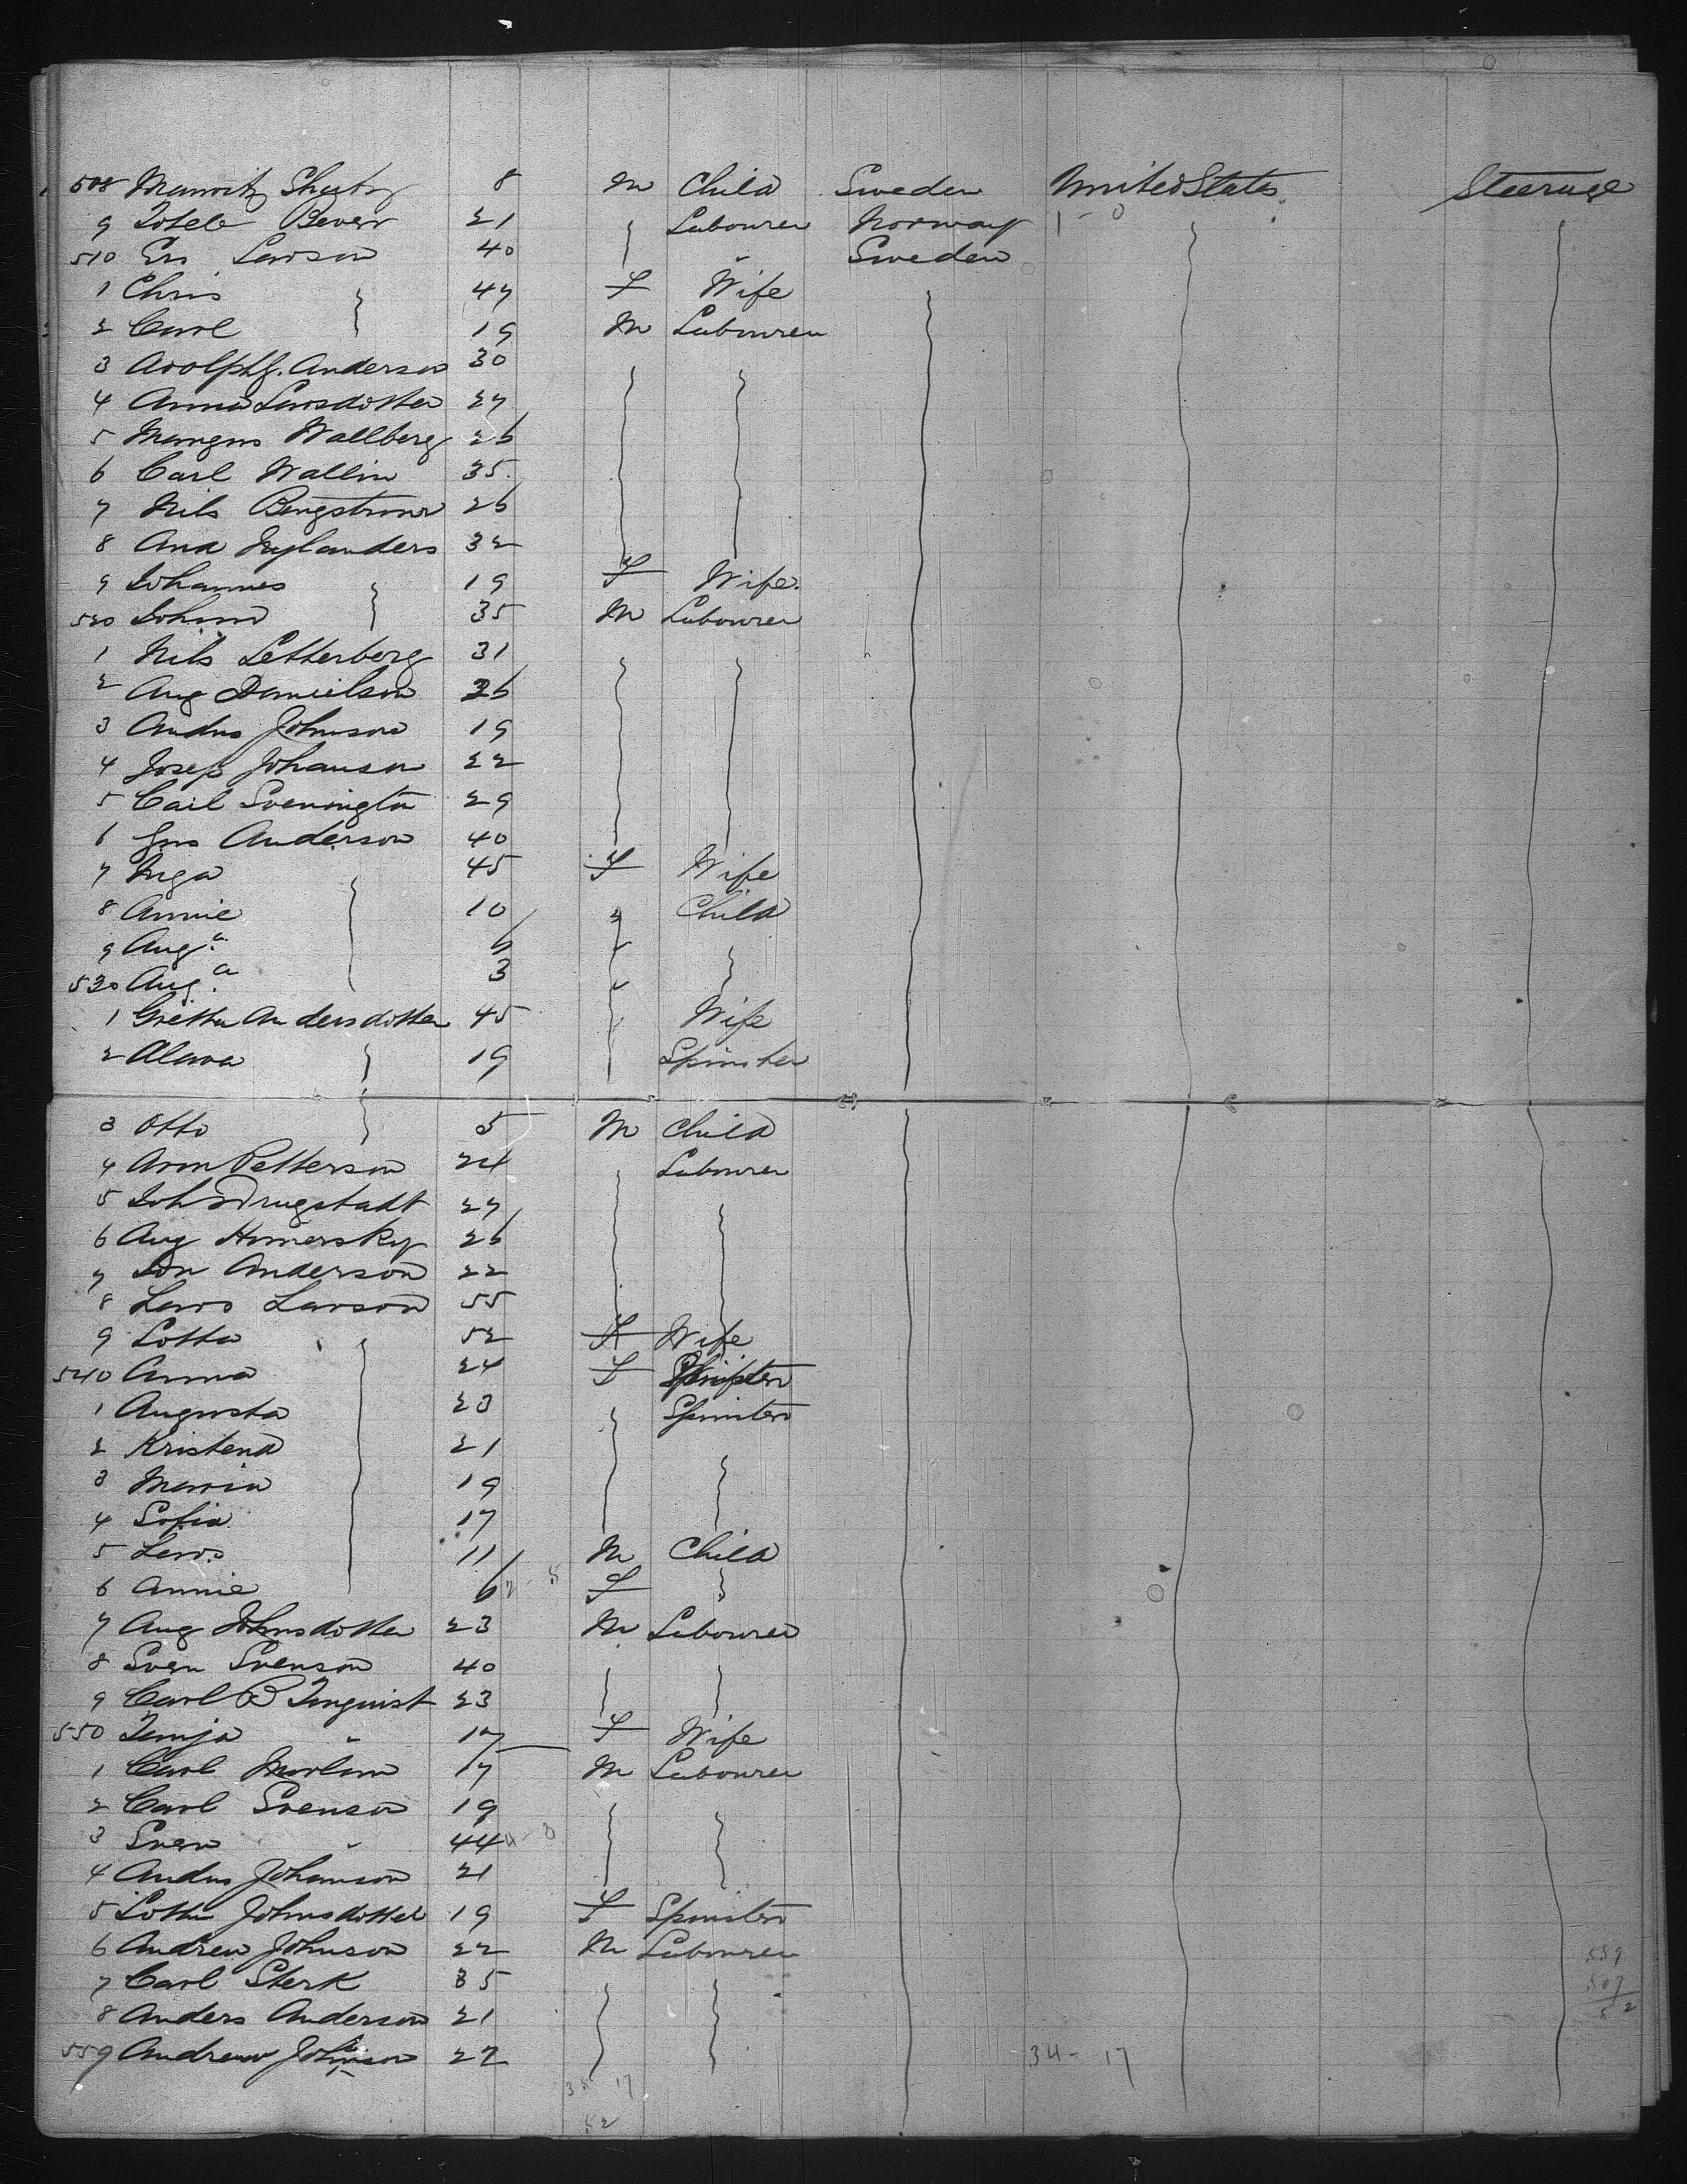 508 8 M Child Sweden United States Steerage
9 21 Labourer Norway 1 - 0
510 Larson 40 " Sweden
1 Chris 47 F Wife
2 Carl 19 M Labourer
3 Adolph Anderson 30
4 Anna Larsdotter 27
5 Mangus Wallberg 26
6 Carl Wallin 35.
7 Nils Bengstrom 26
8 And Nylanders 32
9 Johannes 19 F Wife.
520 35 M Labourer
1 Nils Letterberg 31
2 Aug Danielson 36
3 Andrs Johnson 19
4 Josep Johanson 22
5 Carl 29
6 Jns Anderson 40
7 Inga 45 F Wife
8 Annie 10 Child
9 Aug.a 6
530 Aug.a 3
1 Gretta Andersdotter 45 Wife
2 19 Spinster
3 Otto 5 M Child
4 Aron Petterson 24 Labourer
5 Joh 27
6 Aug Homersky 26
7 Jon Anderson 22
8 Lars Larson 55
9 Lotta 52 F Wife
540 Anna 24 F Spinster
1 Augusta 23 Spinster
2 Kristena 21
3 Maria 19
4 Sofia 17
5 Lars 11 M Child
6 Annie 6 F
7 Aug Johnsdotter 23 M Labourer
8 Sven Svenson 40
9 Carl B 23
550 " 17 F Wife
1 Carl 17 M Labourer
2 Carl Svenson 19
3 Sven " 44
4 Andrs Johanson 21
5 Lotta Johnsdotter 19 F Spinster
6 Andrew Johnson 22 M Labourer 559
7 Carl Sterk 35 507
8 Anders Anderson 21 52
559 Andrew Johnson 27 34 - 17
35 17
52